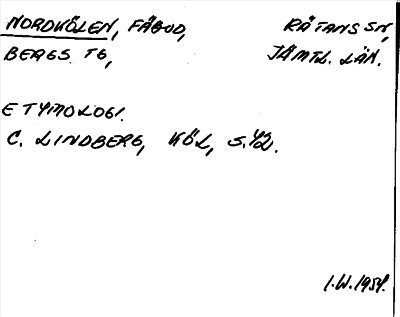 NORDKÖLEN, FÄBOD, RÄTANS SN,
BERGS TG, JÄMTL. LÄN.
ETYMOLOGI.
C. LINDBERG, KÖL, S. 42.
I.W. 1954.